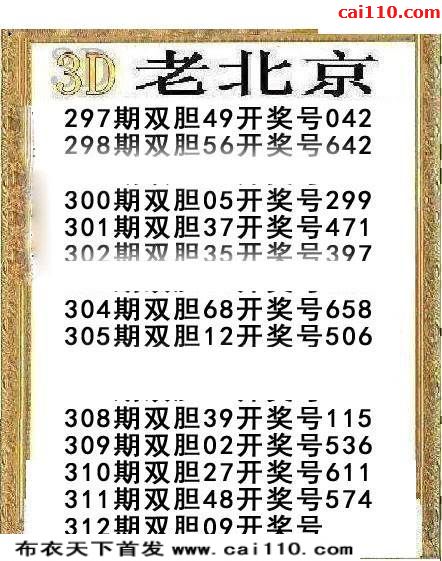 cai110.com
3D 老北京
297期双胆49开奖号042
298期双胆56开奖号642
300期双胆05开奖号299
301期双胆37开奖号471
302期双胆35开奖号397
304期双胆68开奖号658
305期双胆12开奖号506
308期双胆39开奖号115
309期双胆02开奖号536
310期双胆27开奖号611
311期双胆48开奖号574
312期双胆09开奖号
布衣天下首发 www.cai110.com